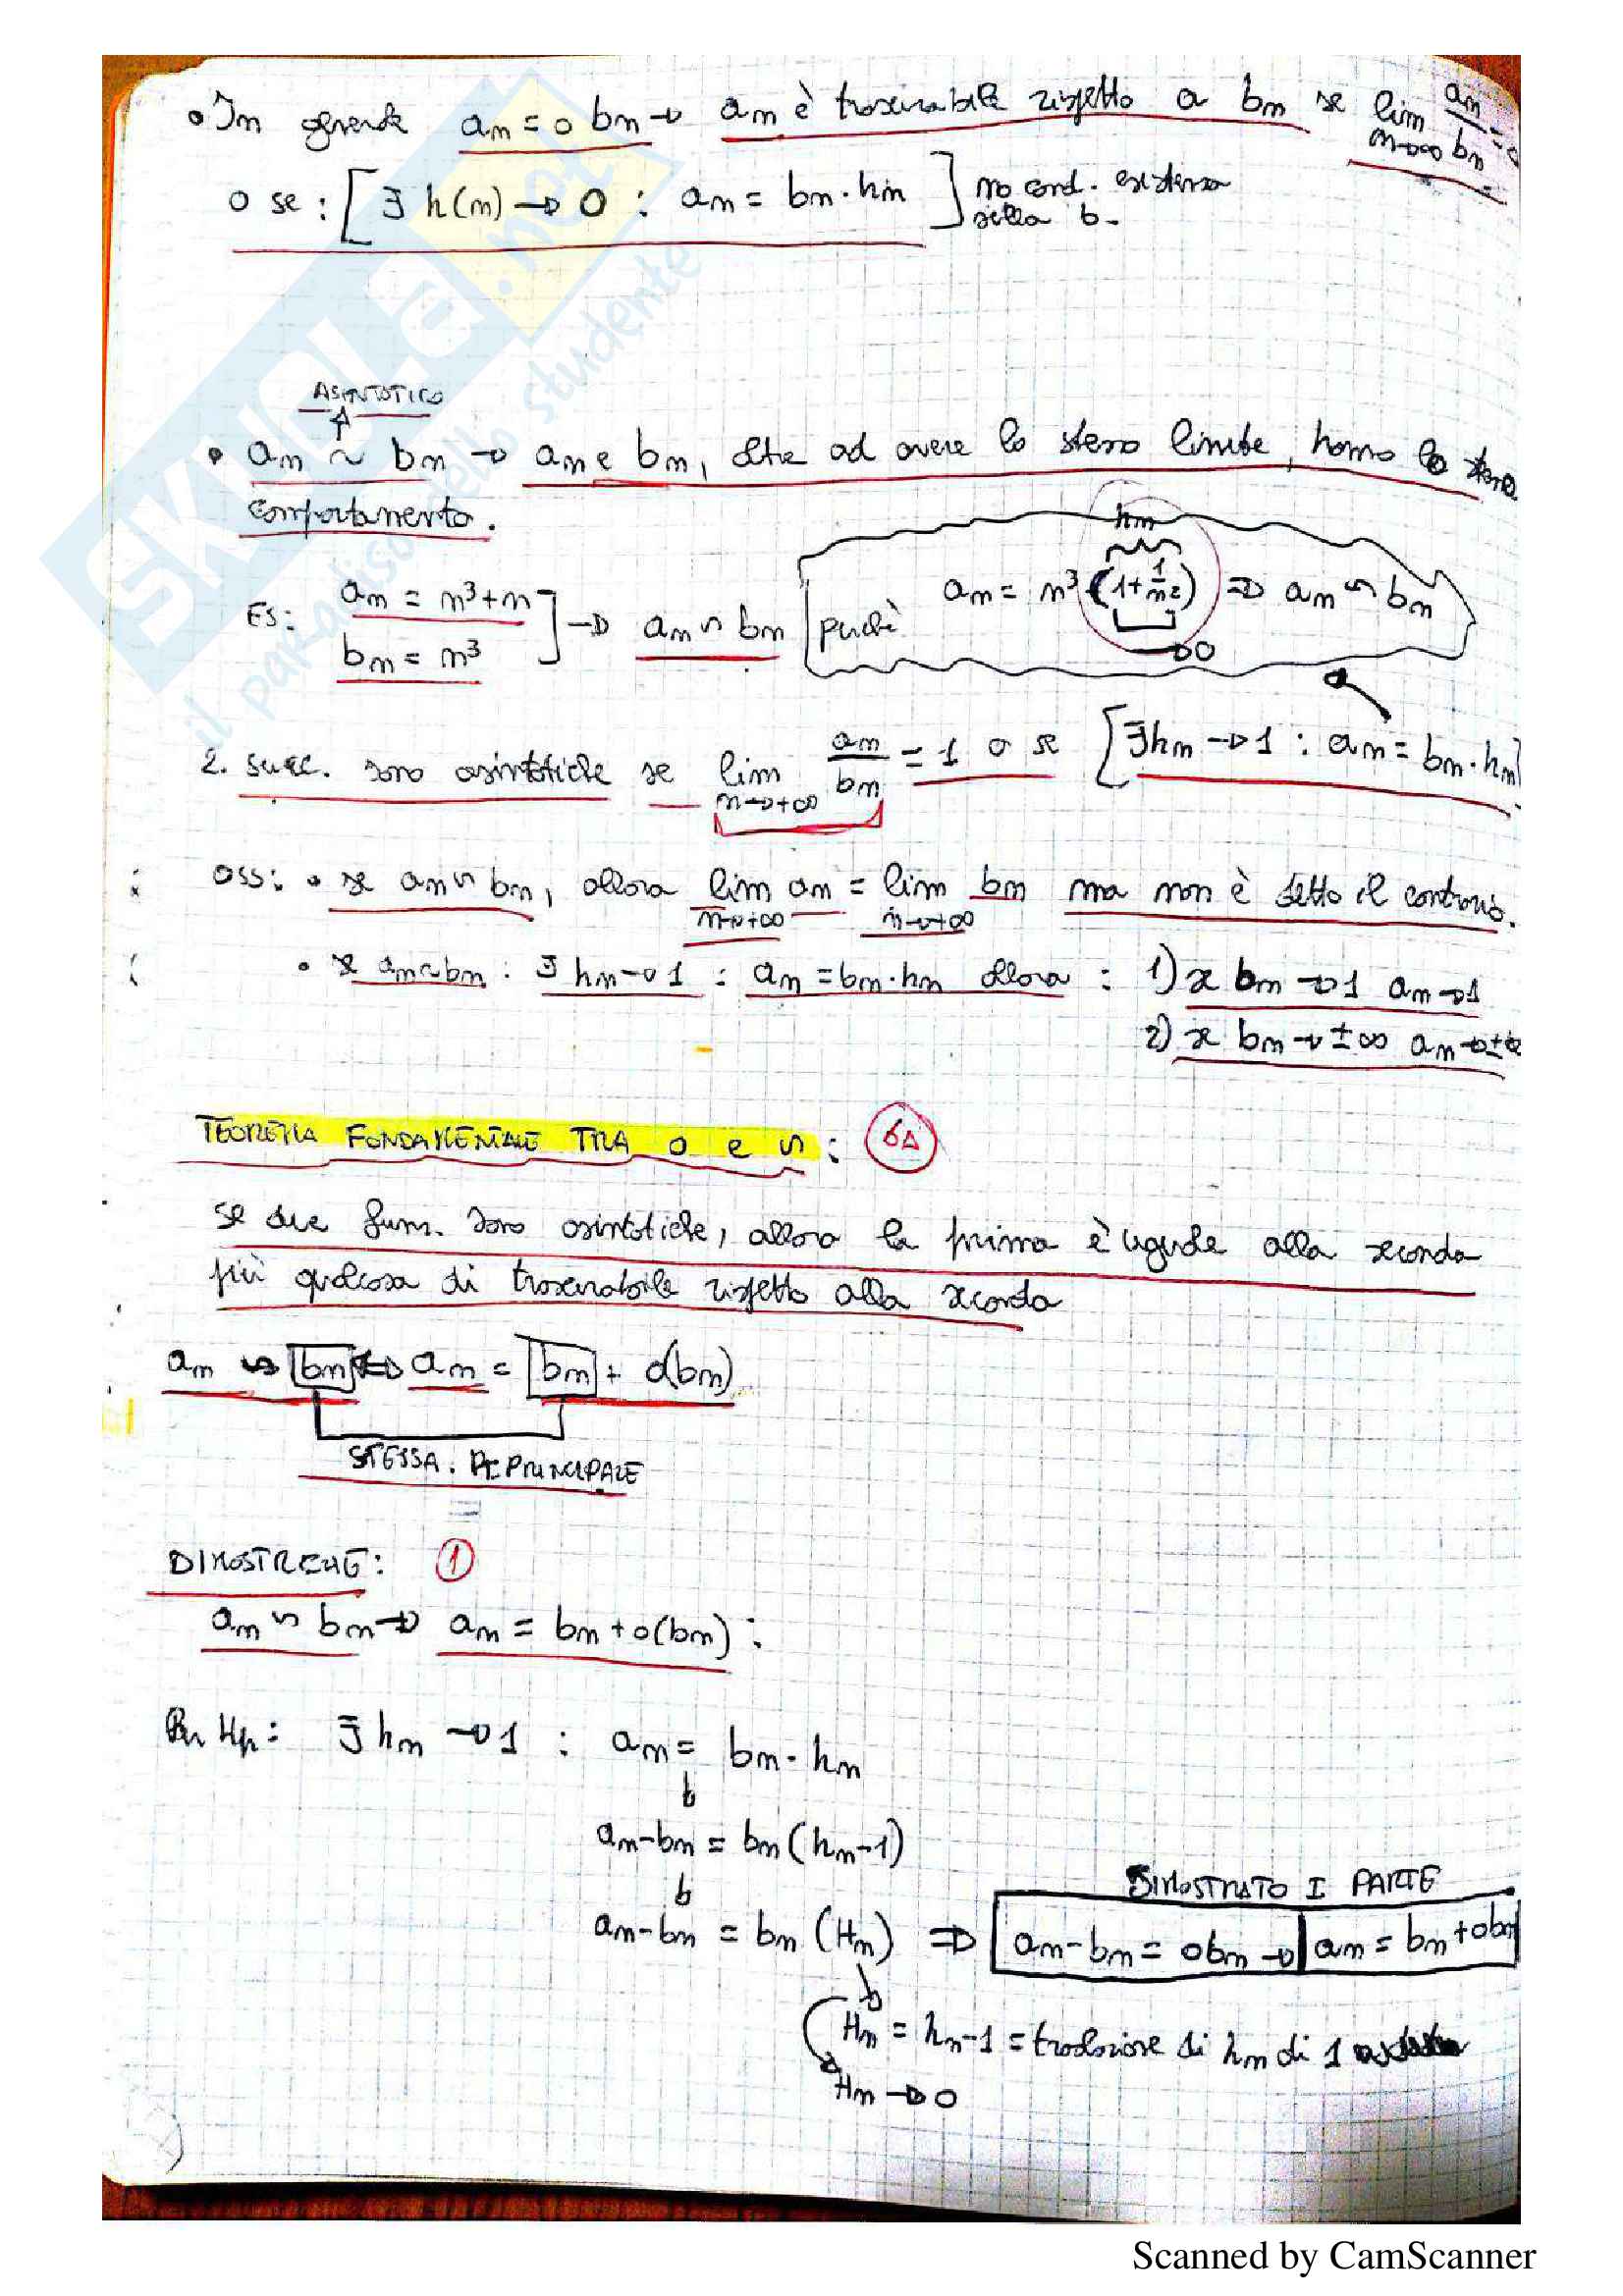 • In generale an = o bn → an è trascurabile rispetto a bn se lim n→∞ an/bn = 0
o se: [∃ h(n) → 0 : an = bn · hn] no cond. esistenza sulla b.
ASINTOTICO
• an ~ bn → an e bn, oltre ad avere lo stesso limite, hanno lo stesso
comportamento.
ES: an = n³+n
bn = n³ ] → an ~ bn perché an = n³ (1+1/n²) ⇒ an ~ bn
hn
→0
2. succ. sono asintotiche se lim n→+∞ an/bn = 1 o se [∃hn → 1 : an = bn · hn]
OSS: • se an ~ bn, allora lim n→+∞ an = lim n→+∞ bn ma non è detto il contrario.
• se an~bn : ∃ hn→1 : an = bn·hn allora : 1) se bn → 1 an→1
2) se bn → ±∞ an→±∞
TEOREMA FONDAMENTALE TRA o e ~ : 6A
se due funz. sono asintotiche, allora la prima è uguale alla seconda
più qualcosa di trascurabile rispetto alla seconda
an ~ bn ⇔ an = bn + o(bn)
STESSA. PE PRINCIPALE
DIMOSTRZNE: 1
an ~ bn → an = bn + o(bn) :
Per Hp: ∃ hn → 1 : an = bn · hn
an-bn = bn (hn-1)
DIMOSTRATO I PARTE
an-bn = bn (Hn) ⇒ an-bn = obn → an = bn + obn
Hn = hn-1 = traslazione di hn di 1
Hn → 0
SKUOLA.net
il paradiso dello studente
Scanned by CamScanner